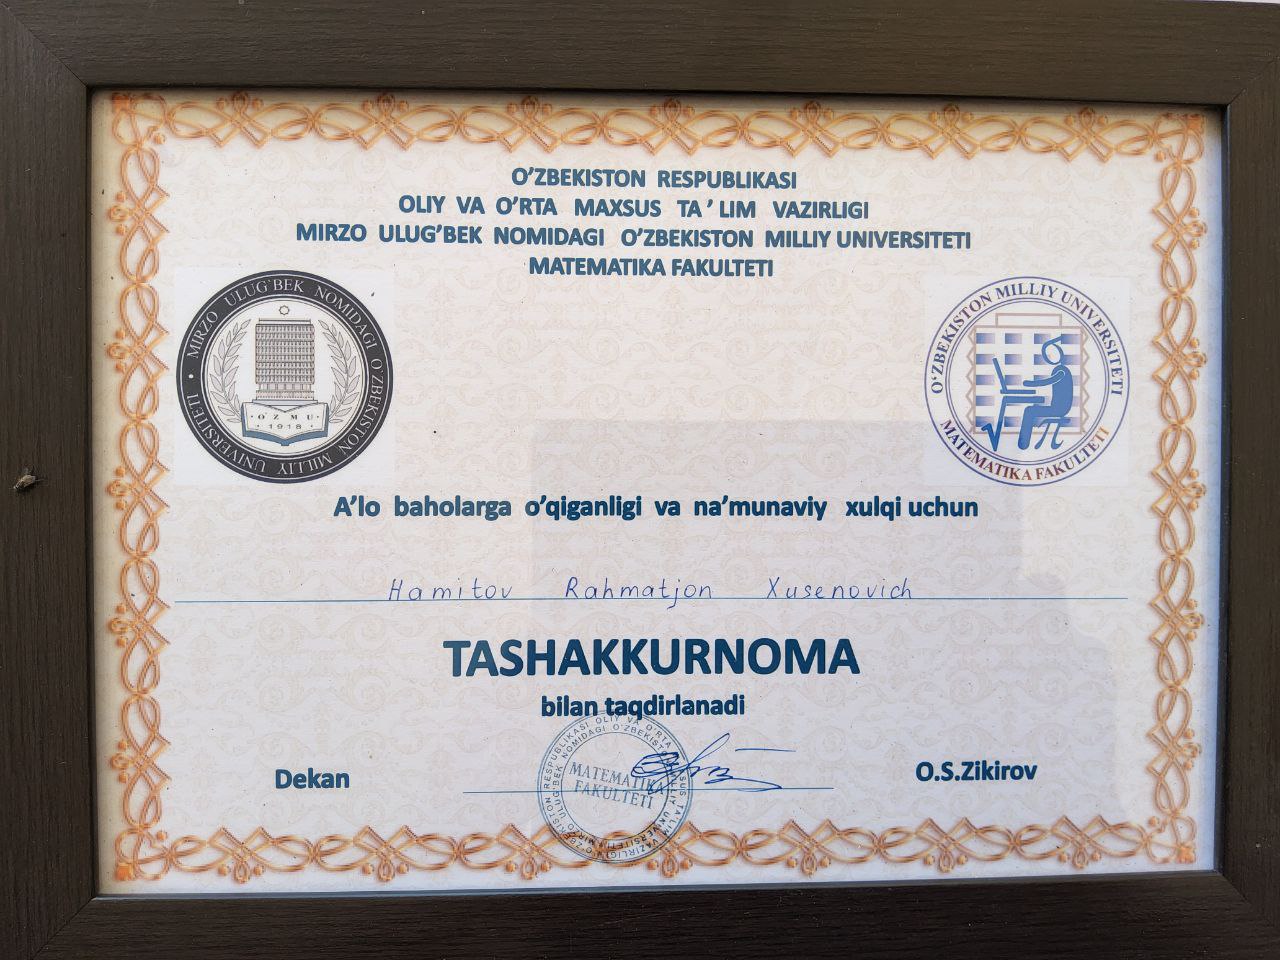 O’ZBEKISTON RESPUBLIKASI
OLIY VA O’RTA MAXSUS TA’LIM VAZIRLIGI
MIRZO ULUG’BEK NOMIDAGI O’ZBEKISTON MILLIY UNIVERSITETI
MATEMATIKA FAKULTETI
MIRZO ULUG’BEK NOMIDAGI O’ZBEKISTON MILLIY UNIVERSITETI
O’ZMU
1918
O’ZBEKISTON MILLIY UNIVERSITETI
MATEMATIKA FAKULTETI
A’lo baholarga o’qiganligi va na’munaviy xulqi uchun
Hamitov Rahmatjon Xusenovich
TASHAKKURNOMA
bilan taqdirlanadi
Dekan
O.S.Zikirov
O’ZBEKISTON RESPUBLIKASI OLIY VA O’RTA MAXSUS TA’LIM VAZIRLIGI
MIRZO ULUG’BEK NOMIDAGI O’ZBEKISTON MILLIY UNIVERSITETI
MATEMATIKA
FAKULTETI